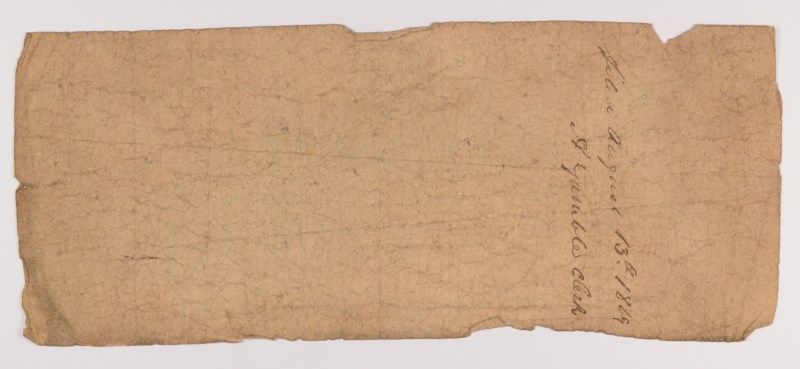 Filed August 13th 1819
A Gamble Clerk